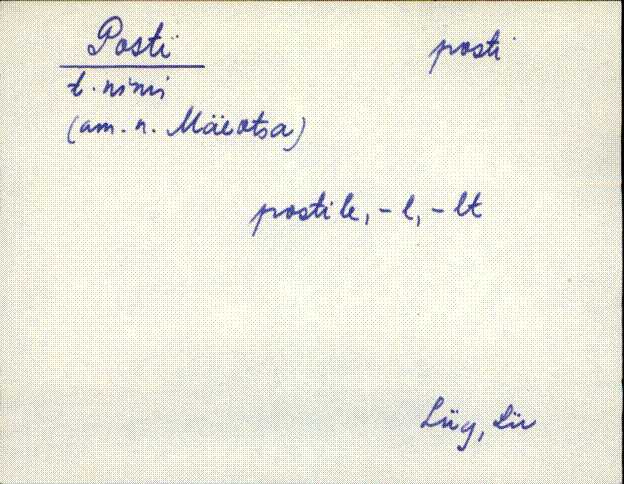 Posti posti
t. nimi
(am. n. Mäeotsa)
postile, -l, -lt
Lüg, Liiv